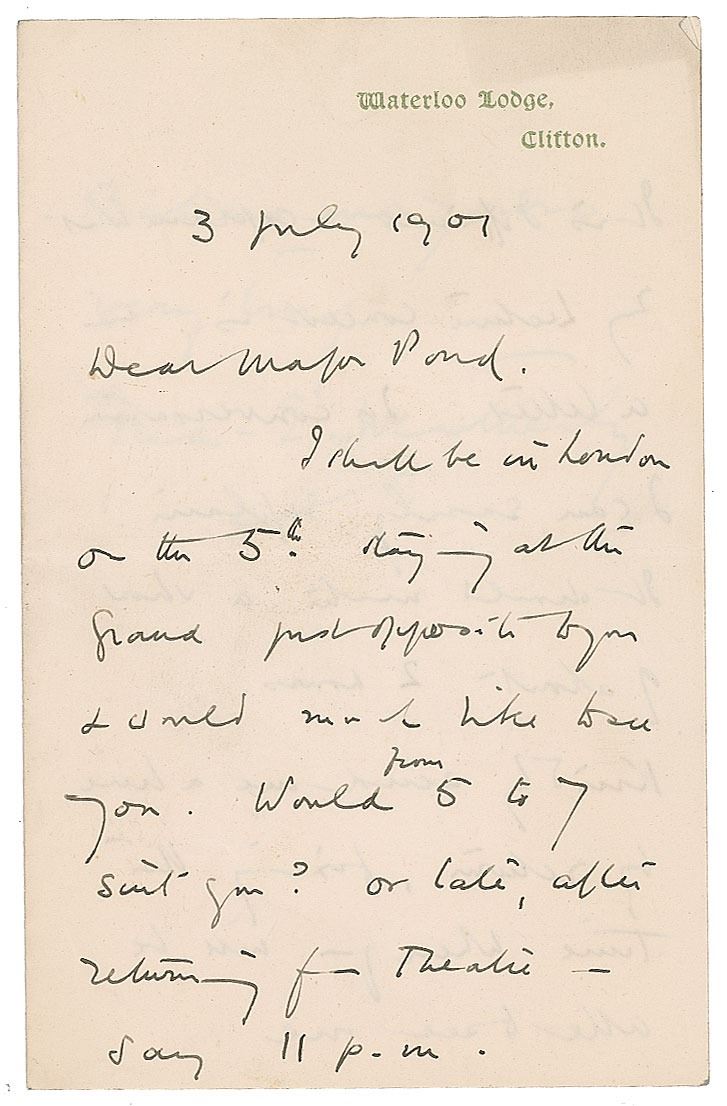 Waterloo Lodge,
Clifton.
3 July 1901
Dear Major Pond.
I shall be in London
on the 5th. staying at the
Grand just opposite to you
& would much like to see
you. Would from 5 to 7
suit you? or late, after
returning from Theatre —
Say 11 p.m.